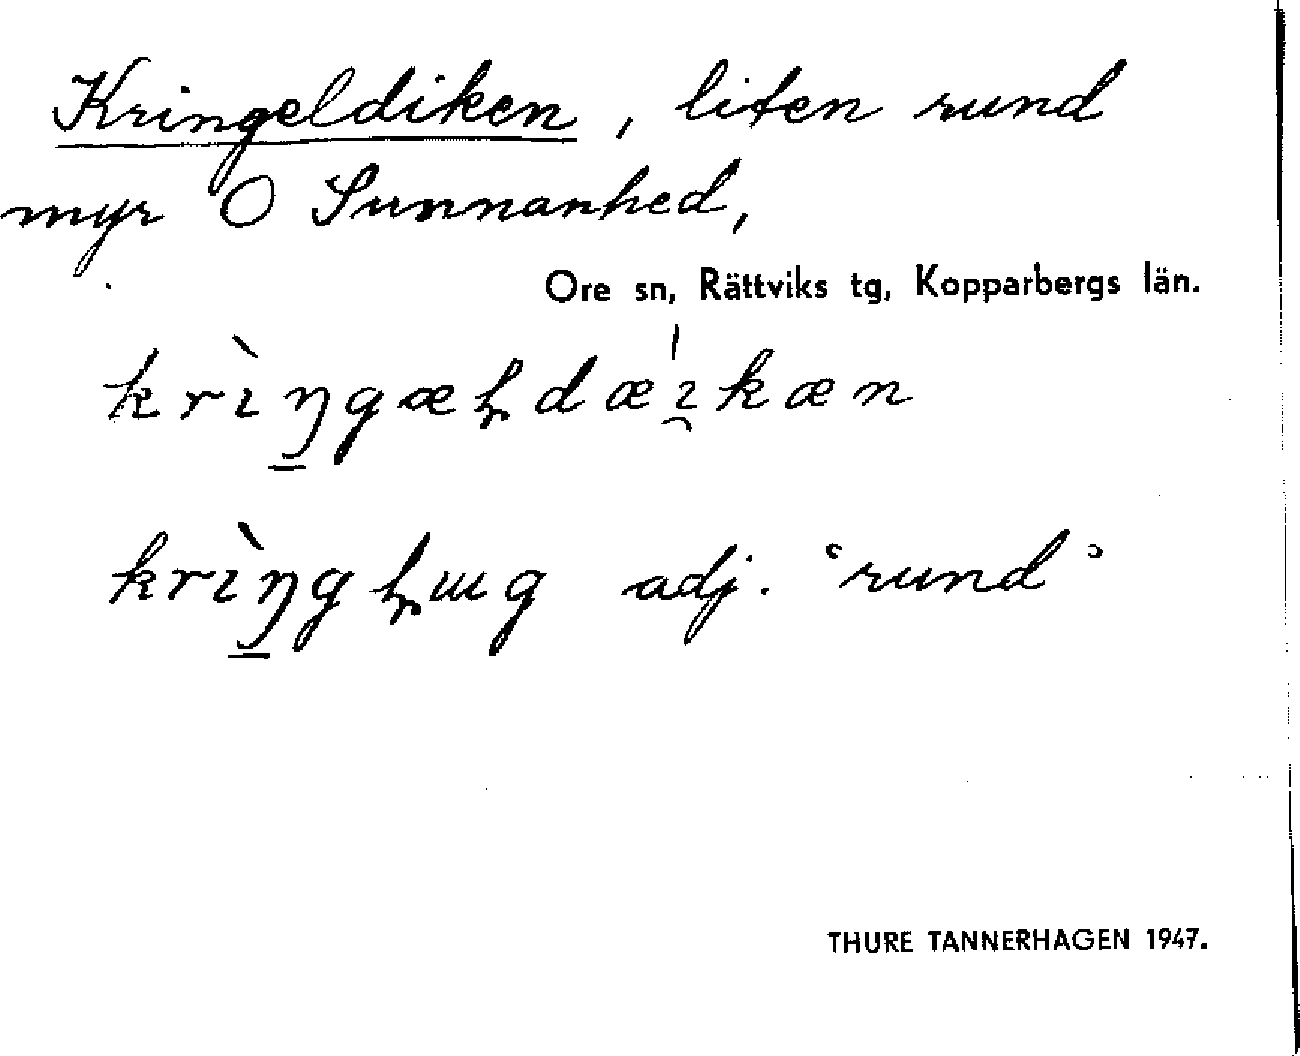 Kringeldiken, liten rund
myr O Sunnanhed,
Ore sn, Rättviks tg, Kopparbergs län.
krìŋgæḷdæ̍ıkæn
krìŋgḷɯg adj. ‘rund’
THURE TANNERHAGEN 1947.